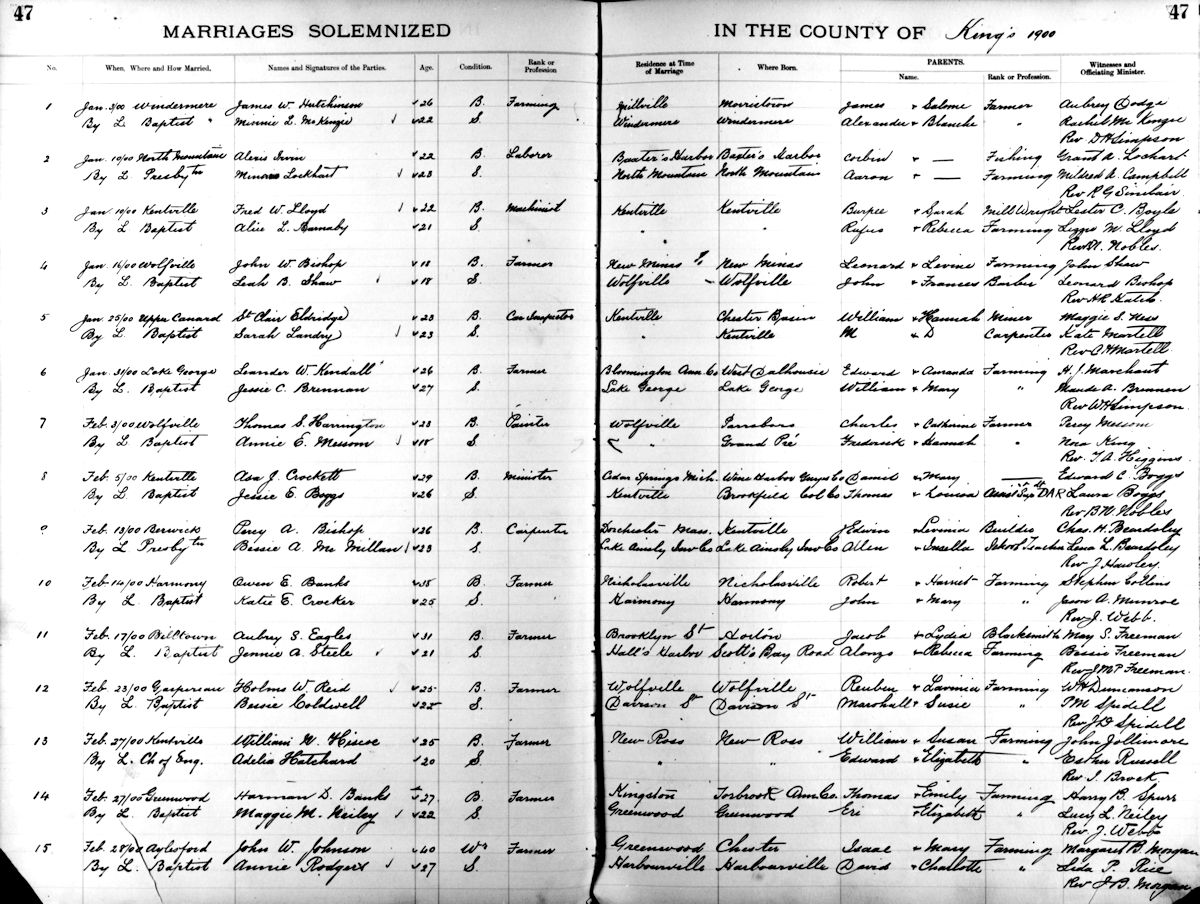 47
47
MARRIAGES SOLEMNIZED IN THE COUNTY OF King's 1900
No. When, Where and How Married. Names and Signatures of the Parties. Age. Condition. Rank or Profession Residence at Time of Marriage Where Born. PARENTS. Name. Rank or Profession. Witnesses and Officiating Minister.
1 Jan. 3/00 Windermere James W. Hutchinson 26 B. Farming Millville Morristown James & Salome Farmer Aubrey Dodge
By L Baptist " Minnie L. McKenzie 22 S. Windermere Windermere Alexander & Blanche " Rachel McKenzie
Rev D H Simpson
2 Jan. 10/00 North Mountain Alexis Irvin 22 B. Laborer Baxter's Harbor Baxter's Harbor Corbin & — Fishing Grant A. Lockhart
By L Presbytn Lockhart 23 S. North Mountain North Mountain Aaron & — Farming Mildred A. Campbell
Rev R G Sinclair
3 Jan 10/00 Kentville Fred W. Lloyd 22 B. Machinist Kentville Kentville Burpee & Sarah Mill Wright Lester C. Boyle
By L Baptist Alice L. Barnaby 21 S. " " Rufus & Rebecca Farming Lizzie M. Lloyd
Rev Nobles.
4 Jan. 16/00 Wolfville John W. Bishop 18 B. Farmer New Minas New Minas Leonard & Levine Farming John Shaw
By L Baptist Leah B. Shaw 18 S. Wolfville Wolfville John & Frances Barber Leonard Bishop
Rev H R Hatch
5 Jan 25/00 Upper Canard St Clair Eldridge 23 B. Car Inspector Kentville Chester Basin William & Hannah Miner Maggie S. Ness
By L. Baptist Sarah Landry 23 S. " Kentville M & D Carpenter Kate Martell
Rev C H Martell
6 Jan. 31/00 Lake George Leander W Kendall 26 B. Farmer Bloomington Ann. Co West Dalhousie Edward & Amanda Farming H. J. Marchant
By L. Baptist Jessie C. Brennan 27 S. Lake George Lake George William & Mary " Maude A. Brennen
Rev W H Simpson
7 Feb. 3/00 Wolfville Thomas S. Harrington 23 B. Painter Wolfville Parrsboro Charles & Catherine Farmer Percy Messom
By L Baptist Annie E. Messom 18 S. " Grand Pré Frederick & Hannah " Nora King
Rev. T. A. Higgins
8 Feb. 5/00 Kentville Asa J. Crockett 29 B. Minister Cedar Springs Mich. Wine Harbor Guys Co David & Mary — Edward C. Boggs
By L Baptist Jessie E. Boggs 26 S. Kentville Brookfield Col Co Thomas & Louisa DAR Laura Boggs
Rev B N Nobles
9 Feb. 13/00 Berwick Percy A. Bishop 26 B. Carpenter Dorchester Mass. Kentville Edwin & Lavinia Builder Chas. H. Beardsley
By L Presbytn Bessie A. McMillan 23 S. Lake Ainsly Inv Co Lake Ainsly Inv Co Allen & School Teacher Lena L. Beardsley
Rev J. Hawley.
10 Feb. 14/00 Harmony Owen E. Banks 38 B. Farmer Nicholasville Nicholasville Robert & Harriet Farming Stephen Collins
By L Baptist Katie E. Crocker 25 S. Harmony Harmony John & Mary " Jason A. Munroe
Rev J. Webb.
11 Feb. 17/00 Billtown Aubrey S. Eagles 31 B. Farmer Brooklyn St Horton Jacob & Lydia Blacksmith May S. Freeman
By L. Baptist Jennie A. Steele 21 S. Hall's Harbor Scott's Bay Road Alonzo & Rebecca Farming Bessie Freeman
Rev J M P Freeman.
12 Feb. 23/00 Gaspereau Holms W. Reid 25 B. Farmer Wolfville Wolfville Reuben & Lavinia Farming W H Duncanson
By L. Baptist Bessie Coldwell 22 S. Davison St Davison St Marshall & Susie " P M Spidell
Rev J D Spidell
13 Feb. 27/00 Kentville William W. Hiscoe 25 B. Farmer New Ross New Ross William & Susan Farming John Jollimore
By L. Ch of Eng. Adelia Hatchard 20 S. " " Edward & Elizabeth " Esther Russell
Rev. I. Brock.
14 Feb. 27/00 Greenwood Harman D. Banks 27. B. Farmer Kingston Torbrook Ann Co. Thomas & Emily Farming Harry B. Spurr
By L. Baptist Maggie M. Neiley 22 S. Greenwood Greenwood Eri & Elizabeth " Lucy L. Neiley
Rev. J. Webb
15 Feb. 28/00 Aylesford John W. Johnson 40 Wr Farmer Greenwood Chester Isaac & Mary Farming Margaret B. Morgan
By L. Baptist Annie Rodgers 37 S. Harbourville Harbourville David & Charlotte " Leda P. Rice
Rev J B. Morgan